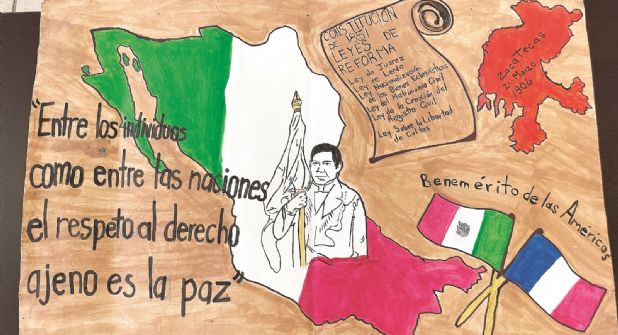 "Entre los individuos
como entre las naciones
el respeto al derecho
ajeno es la paz"
CONSTITUCIÓN
DE 1857
LEYES DE
REFORMA
Ley de Juarez
Ley de Lerdo
Ley Nacionalización
de los Bienes Eclesiásticos
Ley del Matrimonio Civil
Ley de la Creación del
Registro Civil
Ley Sobre la Libertad
de Cultos
Zacatecas
21 Marzo
1806
Benemérito de las Américas